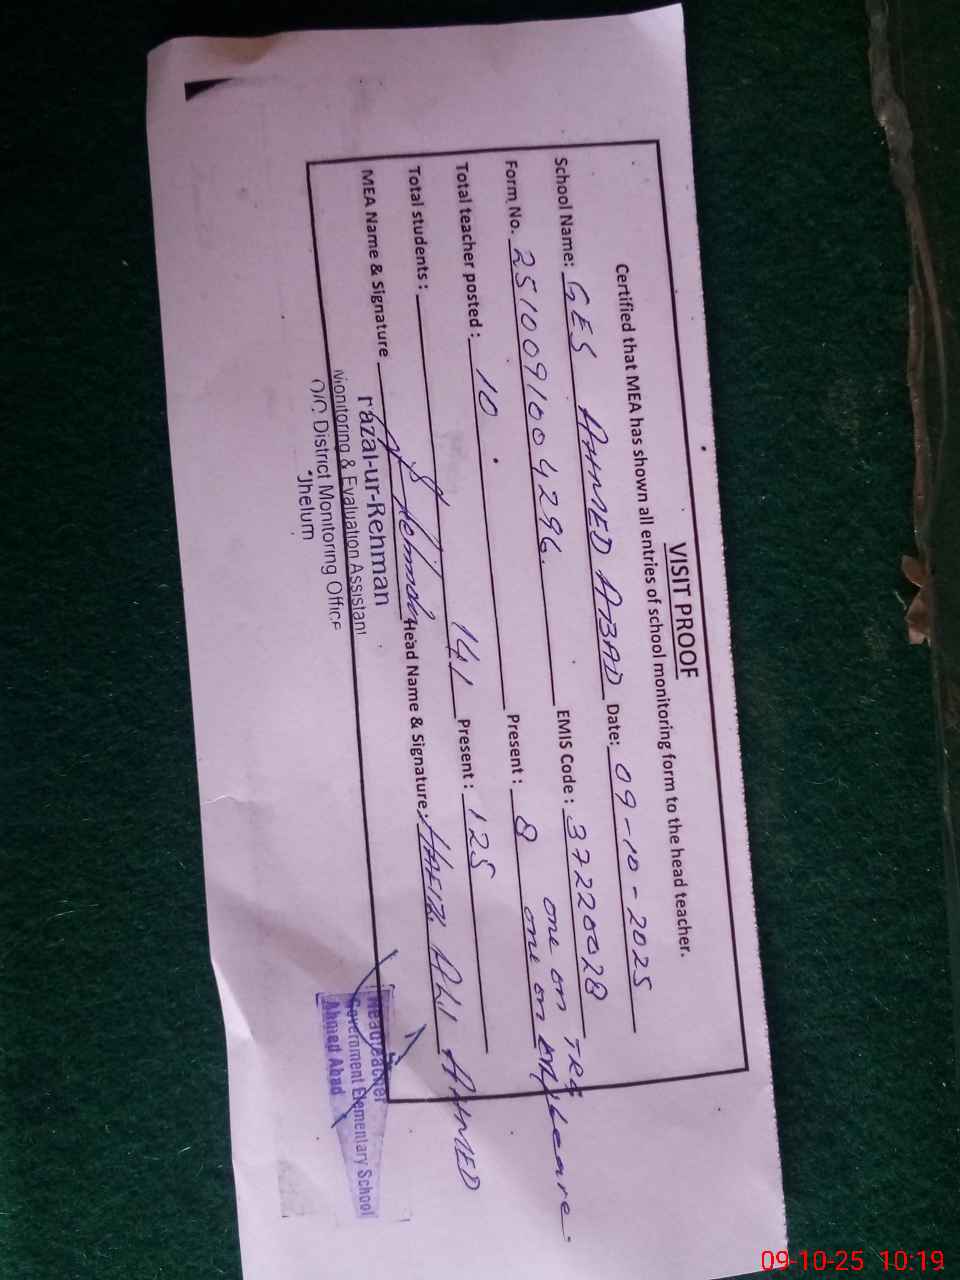 VISIT PROOF
Certified that MEA has shown all entries of school monitoring form to the head teacher.
School Name: GES AHMED ABAD Date: 09-10-2025
Form No. 2510091004296 EMIS Code: 37220028
one on TRG
Total teacher posted: 10 Present: 8 one on leave.
Total students: 141 Present: 125
MEA Name & Signature Head Name & Signature: HAFIZ ALI AHMED
Fazal-ur-Rehman
Monitoring & Evaluation Assistant
O/O District Monitoring Office
Jhelum
Headteacher
Government Elementary School
Ahmed Abad
09-10-25 10:19